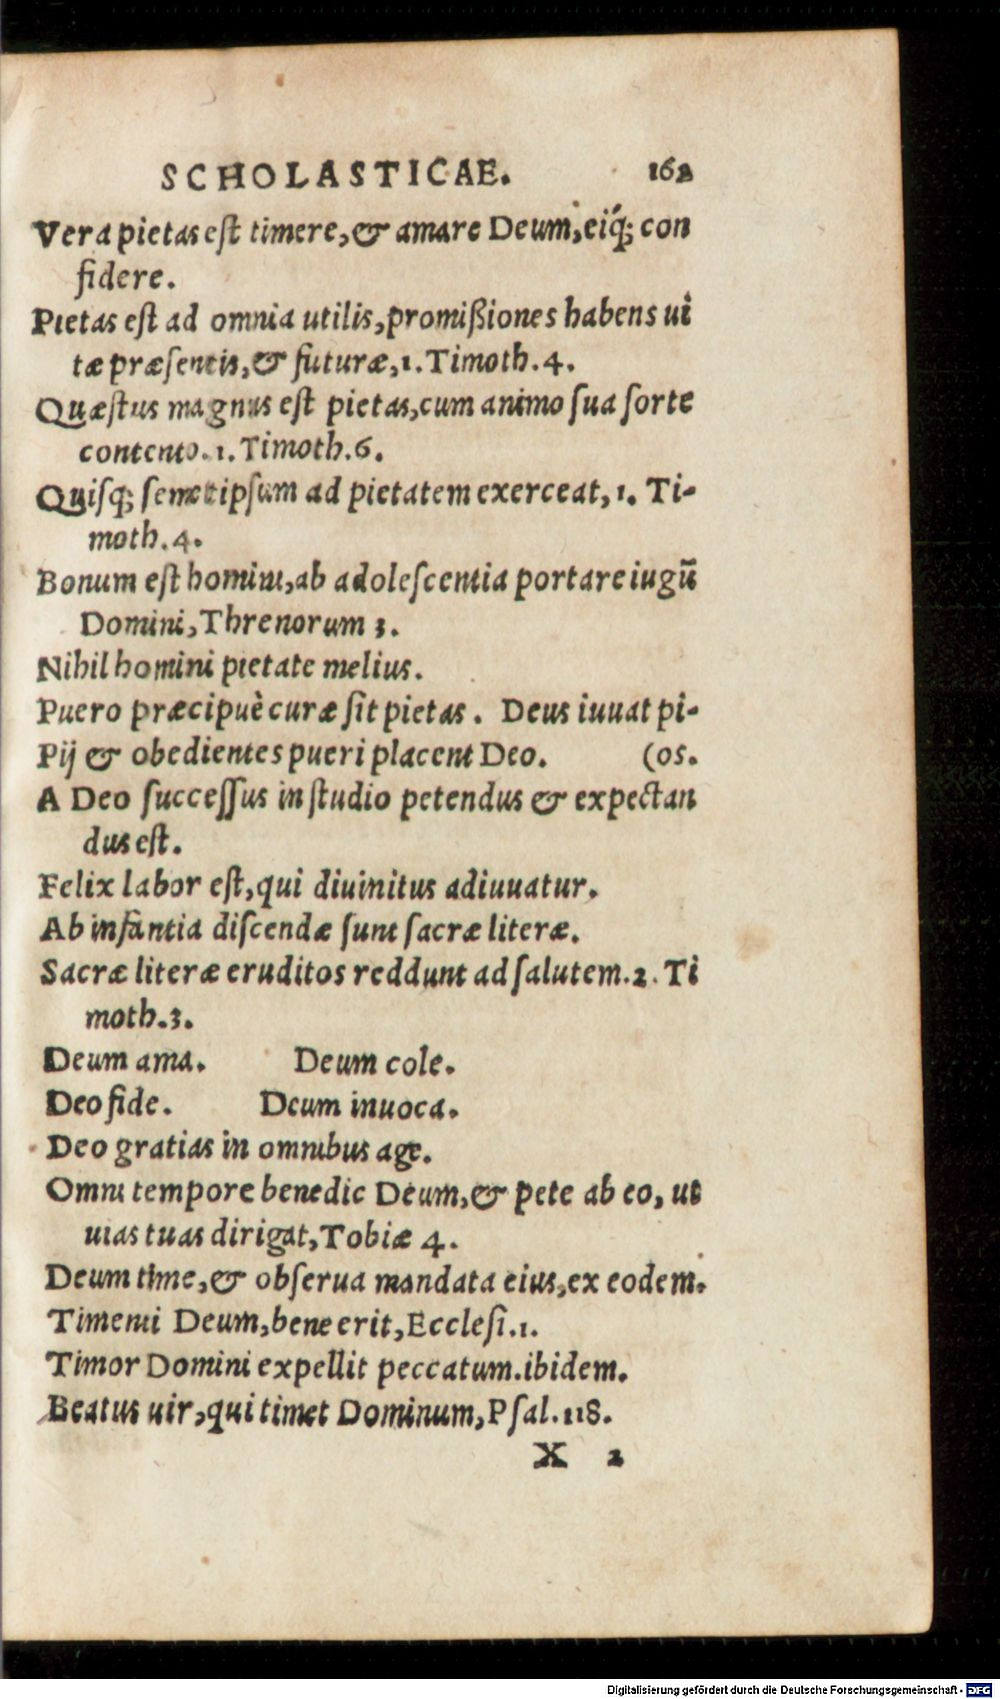 SCHOLASTICAE. 162
Vera pietas est timere, & amare Deum, eiq́; con
fidere.
Pietas est ad omnia utilis, promißiones habens ui
tæ præsentis, & futuræ, 1. Timoth. 4.
Quæstus magnus est pietas, cum animo sua sorte
contento. 1. Timoth. 6.
Quisq; semetipsum ad pietatem exerceat, 1. Ti-
moth. 4.
Bonum est homini, ab adolescentia portare iugū
Domini, Threnorum 3.
Nihil homini pietate melius.
Puero præcipuè curæ sit pietas. Deus iuuat pi-
Pij & obedientes pueri placent Deo. (os.
A Deo successus in studio petendus & expectan
dus est.
Felix labor est, qui diuinitus adiuuatur.
Ab infantia discendæ sunt sacræ literæ.
Sacræ literæ eruditos reddunt ad salutem. 2. Ti
moth. 3.
Deum ama. Deum cole.
Deo fide. Deum inuoca.
Deo gratias in omnibus age.
Omni tempore benedic Deum, & pete ab eo, ut
uias tuas dirigat, Tobiæ 4.
Deum time, & obserua mandata eius, ex eodem.
Timenti Deum, bene erit, Ecclesi. 1.
Timor Domini expellit peccatum. ibidem.
Beatus uir, qui timet Dominum, Psal. 118.
X 2
Digitalisierung gefördert durch die Deutsche Forschungsgemeinschaft - DFG